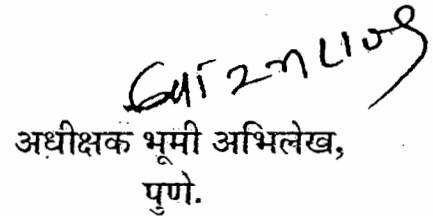 अधीक्षक भूमी अभिलेख,
पुणे.